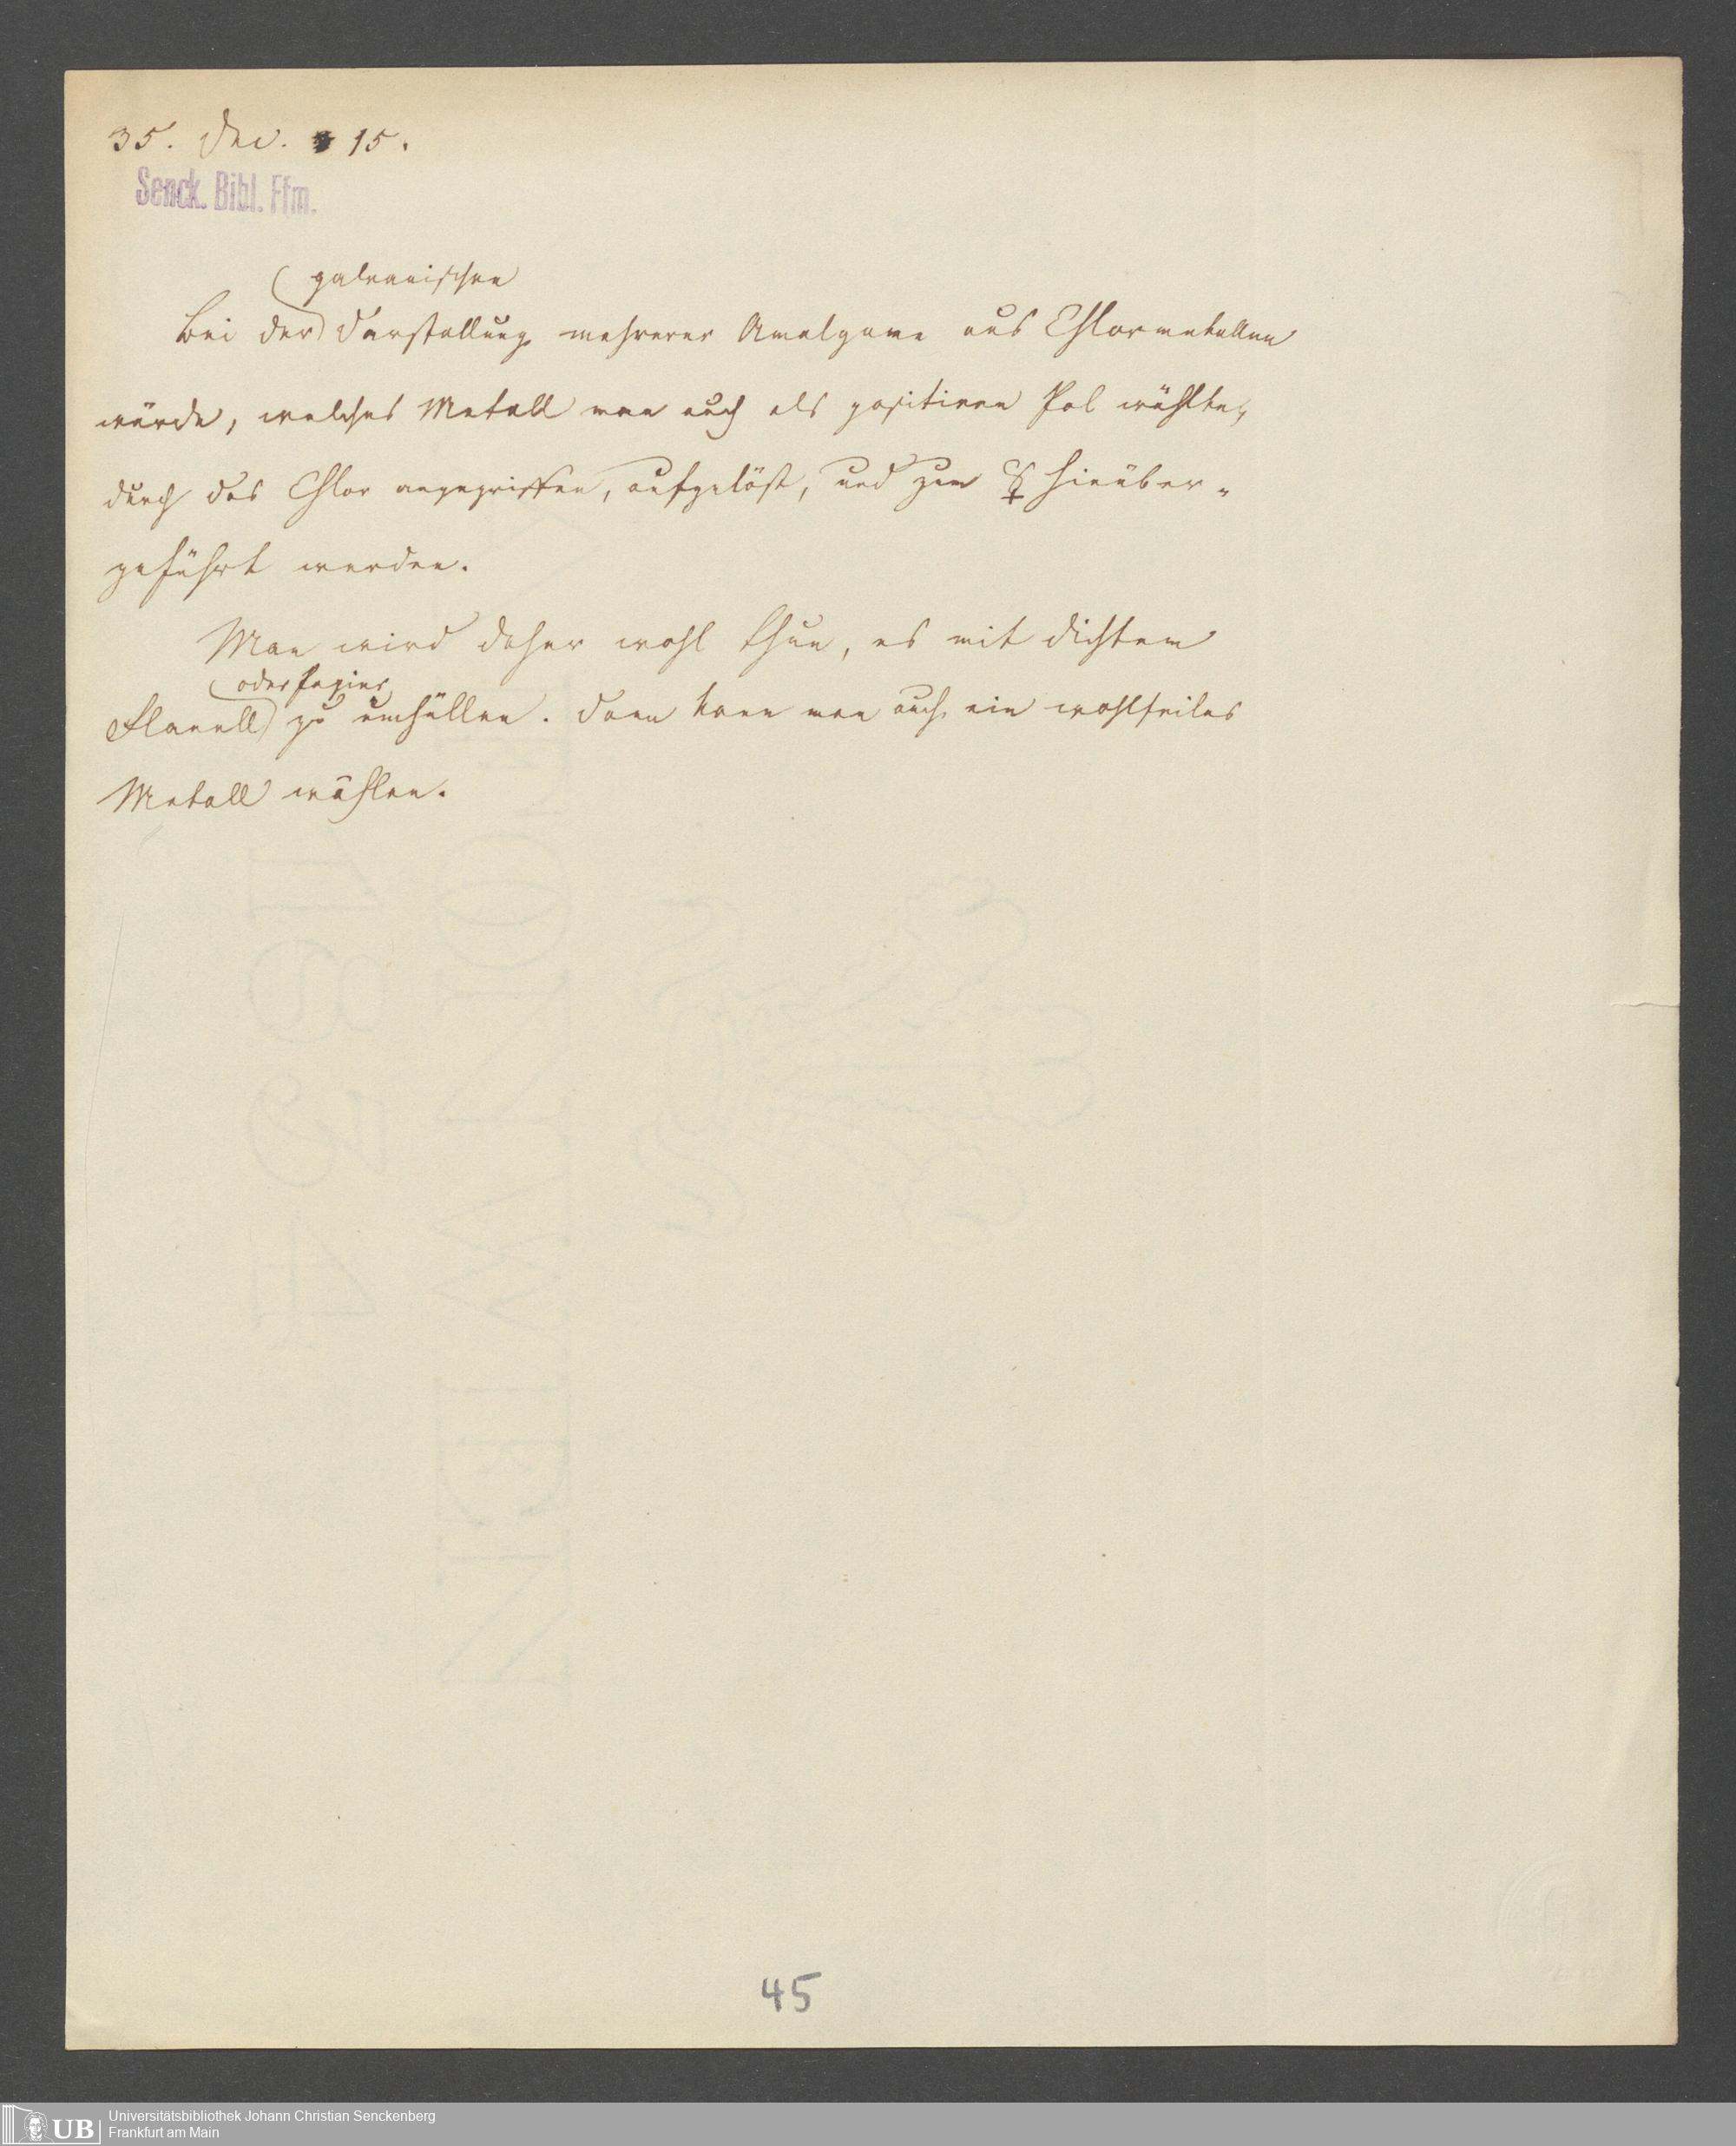 35. Dec. 15.
Senck. Bibl. Ffm.
galvanischen
Bei der Darstellung mehrerer Amalgame aus Chlormetallen
würde, welches Metall man auch als positiven Pol wählte,
durch das Chlor angegriffen, aufgelöst, und zum ☿ hinüber-
geführt werden.
Man wird daher wohl thun, es mit dichtem
oder Papier
Flanell zu umhüllen. Dann kann man auch ein wohlfeiles
Metall wählen.
45
UB
Universitätsbibliothek Johann Christian Senckenberg
Frankfurt am Main